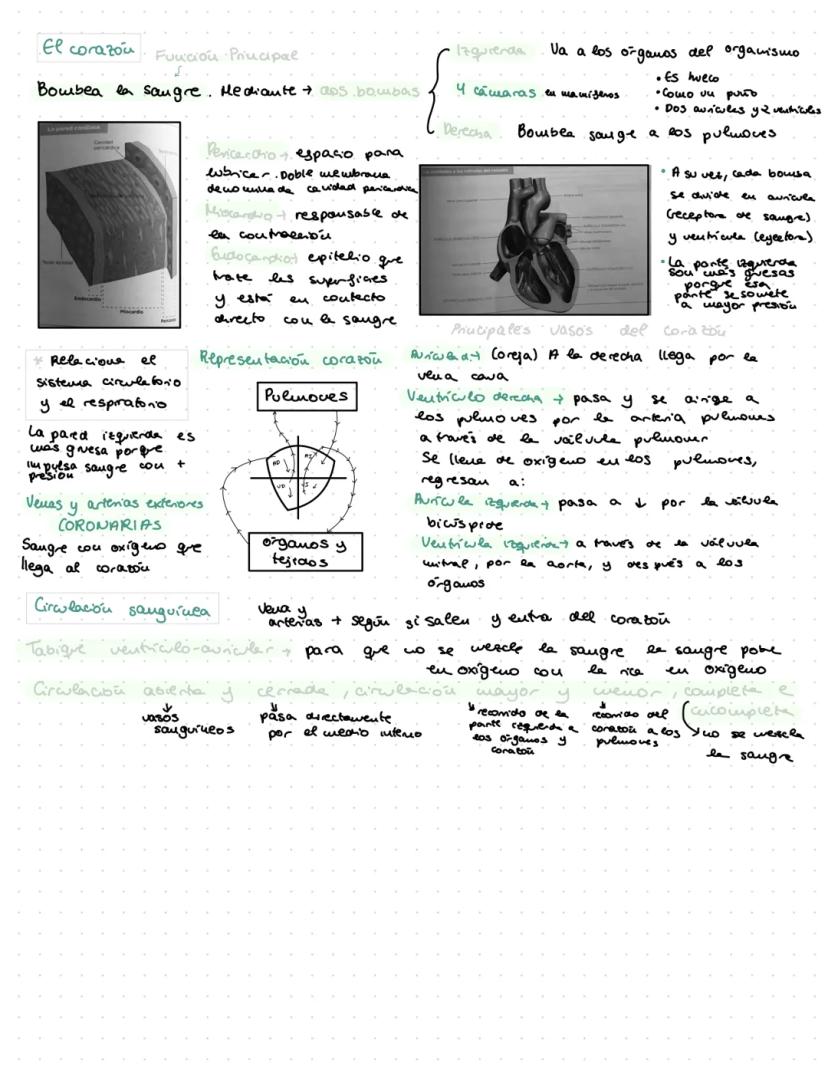 El corazón
Función Principal
Bombea la sangre. Mediante → dos bombas
Izquierda Va a los órganos del organismo
4 cámaras en mamíferos
• Es hueco
• Como un puño
• Dos aurículas y 2 ventrículos
Derecha Bombea sangre a los pulmones
La pared cardíaca
Cavidad pericárdica
Endocardio
Miocardio
Pericardio → espacio para
lubricar. Doble membrana
denominada cavidad pericardica
Miocardio → responsable de
la contracción
Endocardio → epitelio que
trate las superficies
y está en contacto
directo con la sangre
• A su vez, cada bomba
se divide en aurícula
(receptora de sangre)
y ventrícula (eyectora)
• La parte izquierda
son más gruesas
porque esa
parte se somete
a mayor presión
Principales vasos del corazón
* Relaciona el
sistema circulatorio
y el respiratorio
La pared izquierda es
más gruesa porque
impulsa sangre con +
presión
Venas y arterias exteriores
CORONARIAS
Sangre con oxígeno que
llega al corazón
Representación corazón
Pulmones
AD
AI
VD
órganos y
tejidos
(oreja) A la derecha llega por la
vena cava
Ventrículo derecha → pasa y se dirige a
los pulmones por la arteria pulmones
a través de la válvula pulmonar
Se llena de oxígeno en los pulmones,
regresan a:
Aurícula izquierda → pasa a ↓ por la válvula
bicúspide
Ventrícula izquierda → a través de la válvula
mitral, por la aorta, y después a los
órganos
Circulación sanguínea
Vena y
arterias → según si salen y entra del corazón
Tabique ventrículo-auricular → para que no se mezcle la sangre la sangre pobre
en oxígeno con la rica en oxígeno
Circulación abierta y cerrada, circulación mayor y menor, completa e
incompleta
vasos
sanguíneos
pasa directamente
por el medio interno
recorrido de la
parte izquierda a
los órganos y
corazón
recorrido del
corazón a los
pulmones
no se mezcla
la sangre